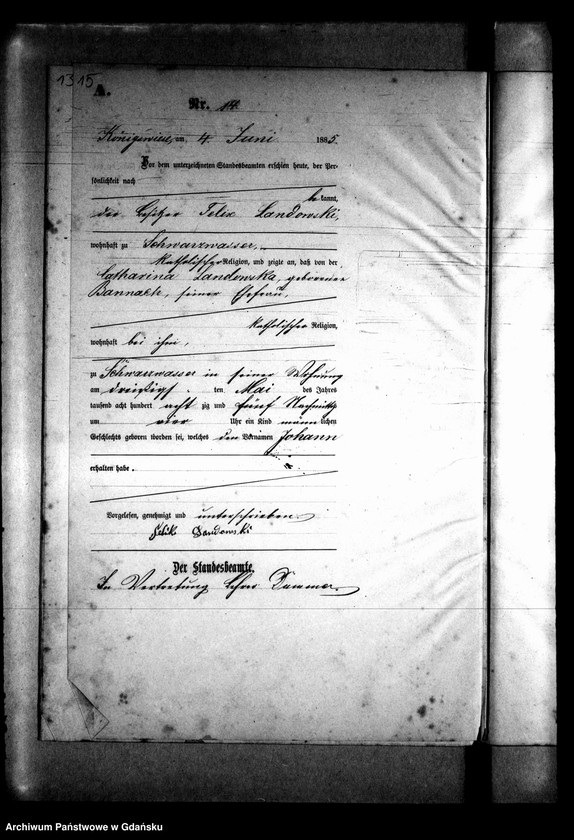 1315
A.
Nr. 14
Königswiese, am 4 Juni 1885.
Vor dem unterzeichneten Standesbeamten erschien heute, der Per-
sönlichkeit nach
be kannt,
der Besitzer Felix Landowski,
wohnhaft zu Schwarzwasser,
katholischer Religion, und zeigte an, daß von der
Catharina Landowska, geborenen
Bannach, seiner Ehefrau,
katholischer Religion,
wohnhaft bei ihm,
zu Schwarzwasser in seiner Wohnung
am dreißigs ten Mai des Jahres
tausend acht hundert acht zig und fünf Nachmittgs
um vier Uhr ein Kind männ lichen
Geschlechts geboren worden sei, welches den Vornamen Johann
erhalten habe.
Vorgelesen, genehmigt und unterschrieben
Felik Landowski
Der Standesbeamte.
In Vertretung Lehrer
Archiwum Państwowe w Gdańsku